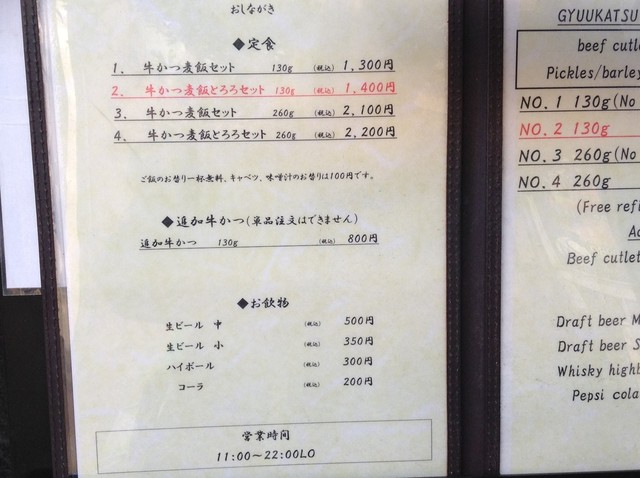 おしながき
◆定食
1. 牛かつ麦飯セット 130g (税込) 1,300円
2. 牛かつ麦飯とろろセット 130g (税込) 1,400円
3. 牛かつ麦飯セット 260g (税込) 2,100円
4. 牛かつ麦飯とろろセット 260g (税込) 2,200円
ご飯のお替り一杯無料、キャベツ、味噌汁のお替りは100円です。
◆追加牛かつ(単品注文はできません)
追加牛かつ 130g (税込) 800円
◆お飲物
生ビール 中 (税込) 500円
生ビール 小 (税込) 350円
ハイボール (税込) 300円
コーラ (税込) 200円
営業時間
11:00～22:00LO
GYUUKATSU
beef cutle
Pickles/barley
NO. 1 130g(No
NO. 2 130g
NO. 3 260g(No
NO. 4 260g
(Free refi
Ad
Beef cutlet
Draft beer M
Draft beer S
Whisky highb
Pepsi cola